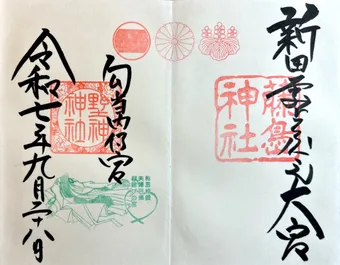 新田霊屋之大宮
藤島
神社
勾当内侍宮
野神
神社
令和七年九月二十八日